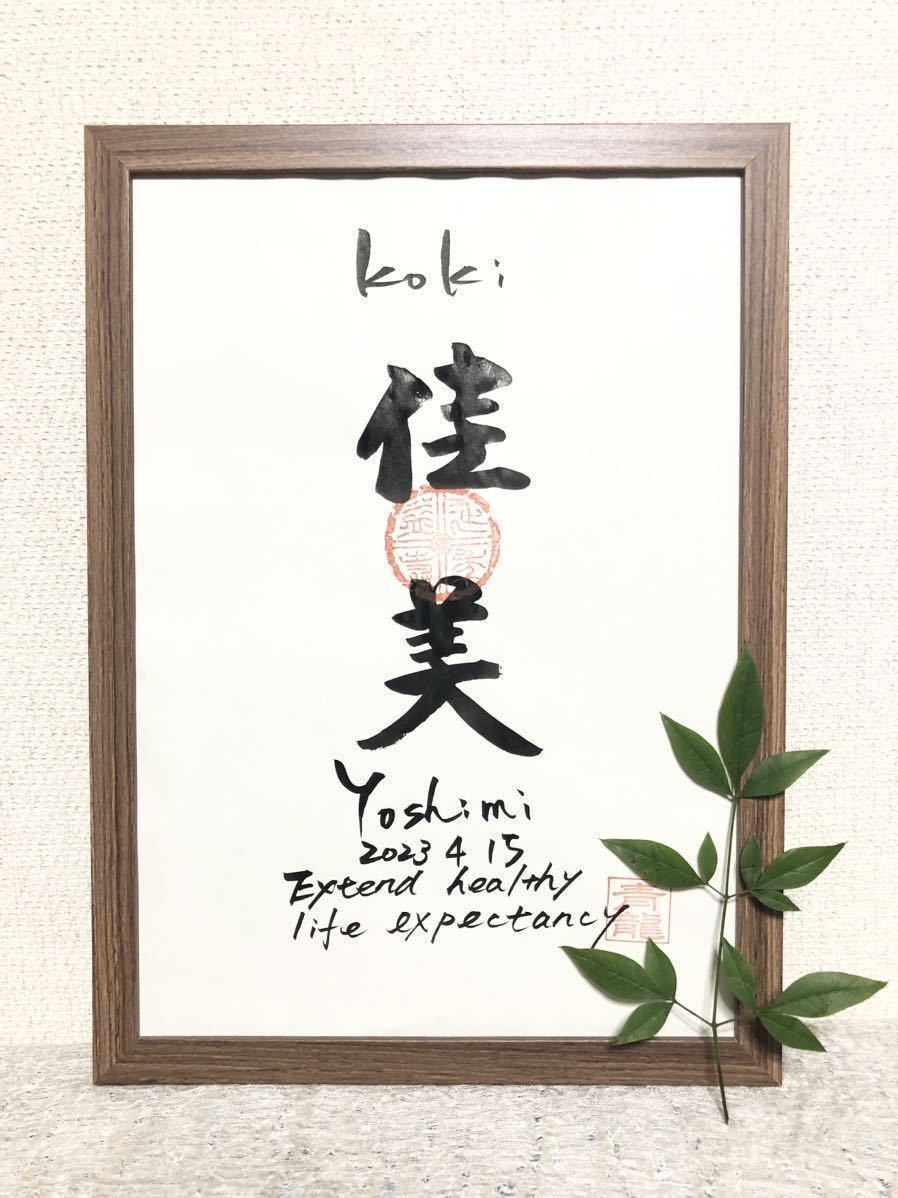 koki
佳
美
Yoshimi
2023 4 15
Extend healthy
life expectancy
青龍